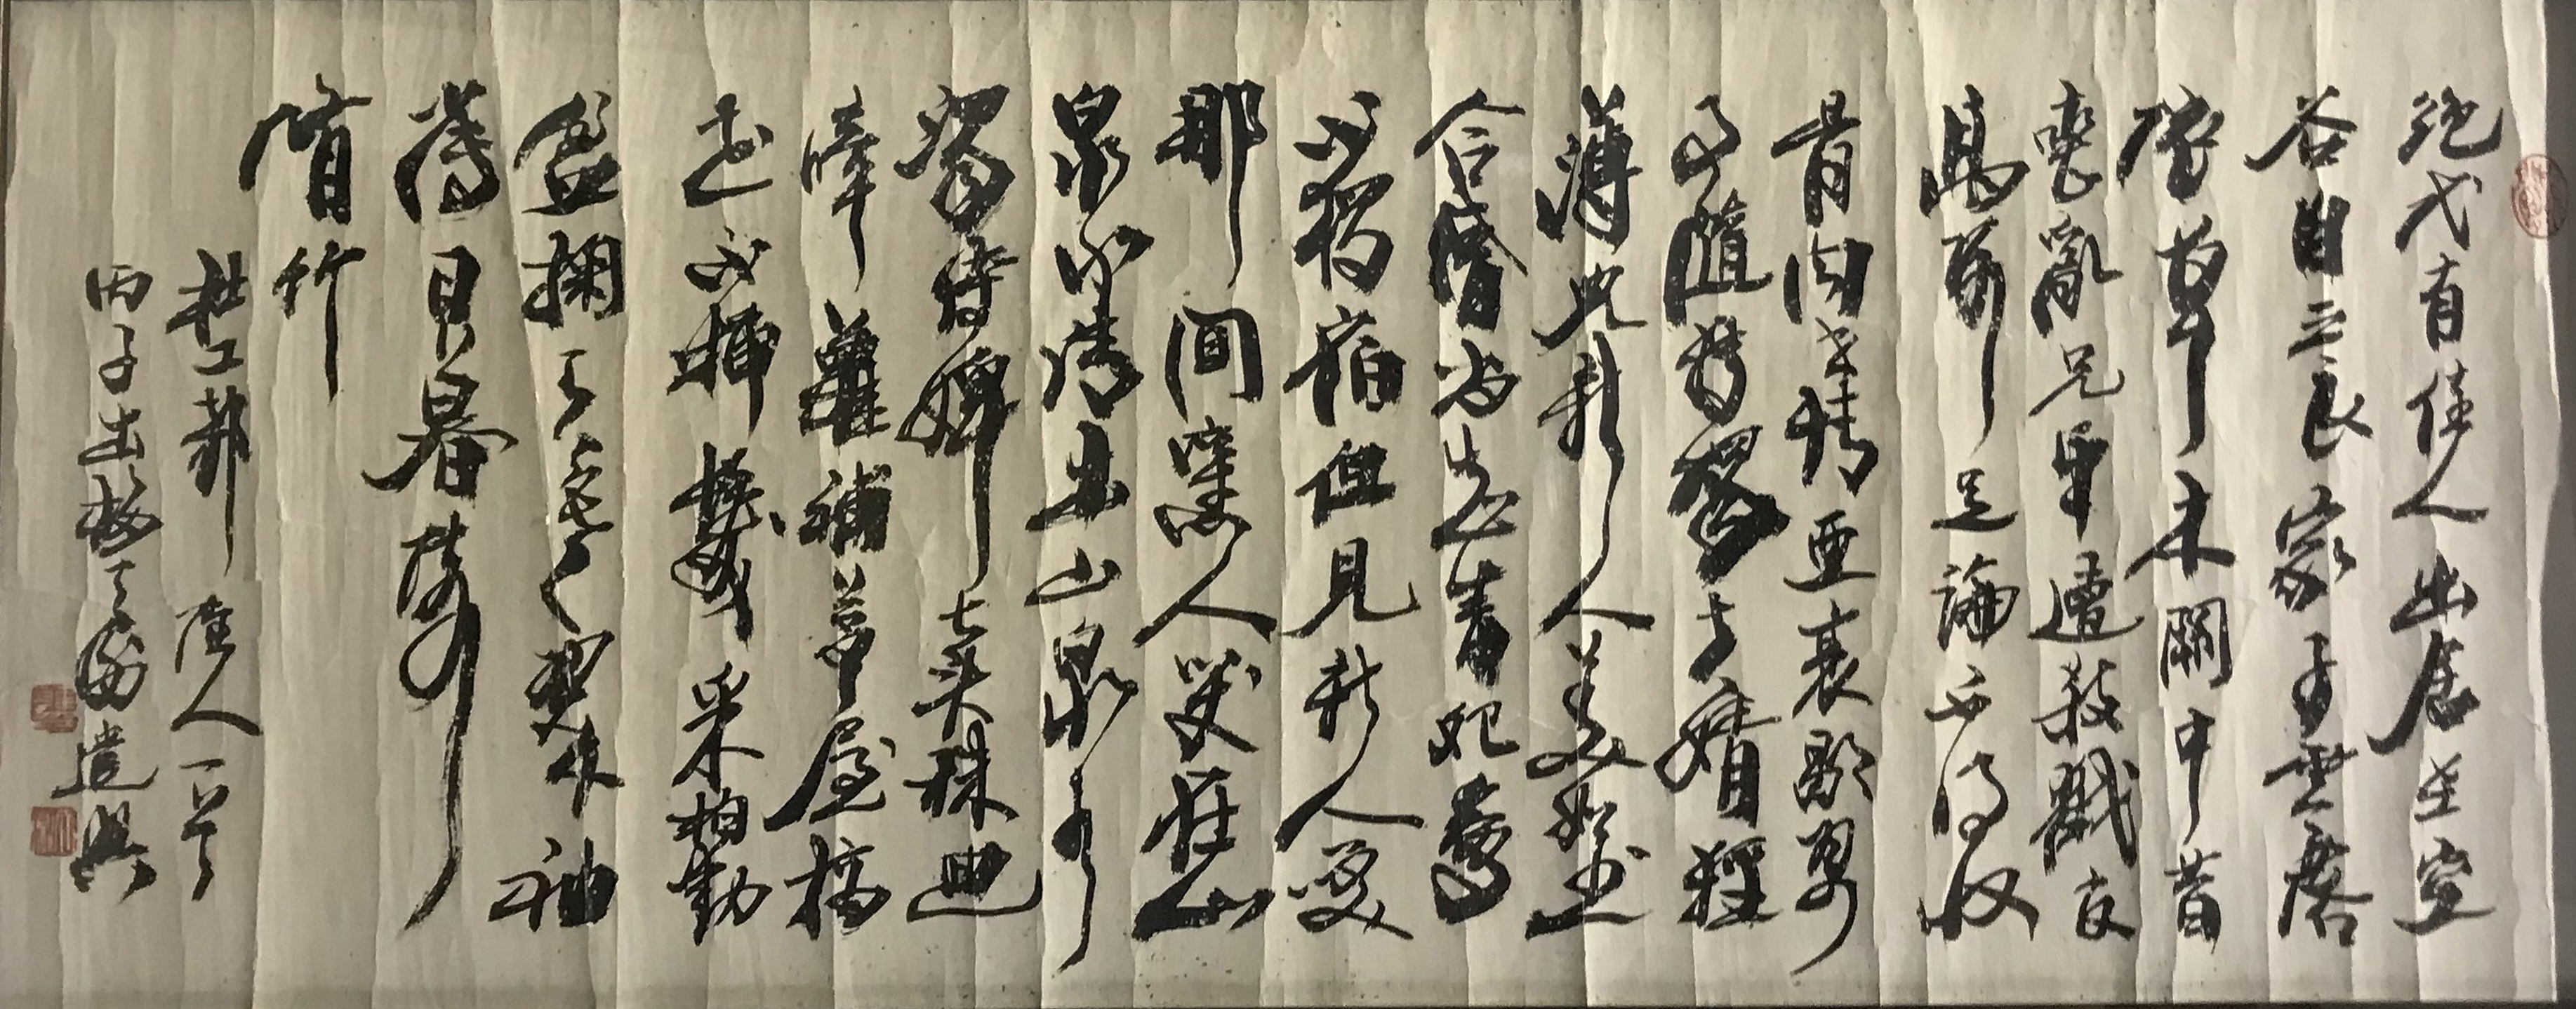 絕代有佳人幽居在空
谷自云良家子零落
依草木關中昔
喪亂兄弟遭殺戮官
高何足論不得收
骨肉世情惡衰歇萬
事隨轉燭夫婿輕
薄兒新人美如玉
合昏尚知時鴛鴦
不獨宿但見新人笑
那聞舊人哭在山
泉水清出山泉水
濁侍婢賣珠迴
牽蘿補茅屋摘
花不插髮采柏動
盈掬天寒翠袖
薄日暮倚
脩竹
杜工部佳人一首
丙子出梅之遣興